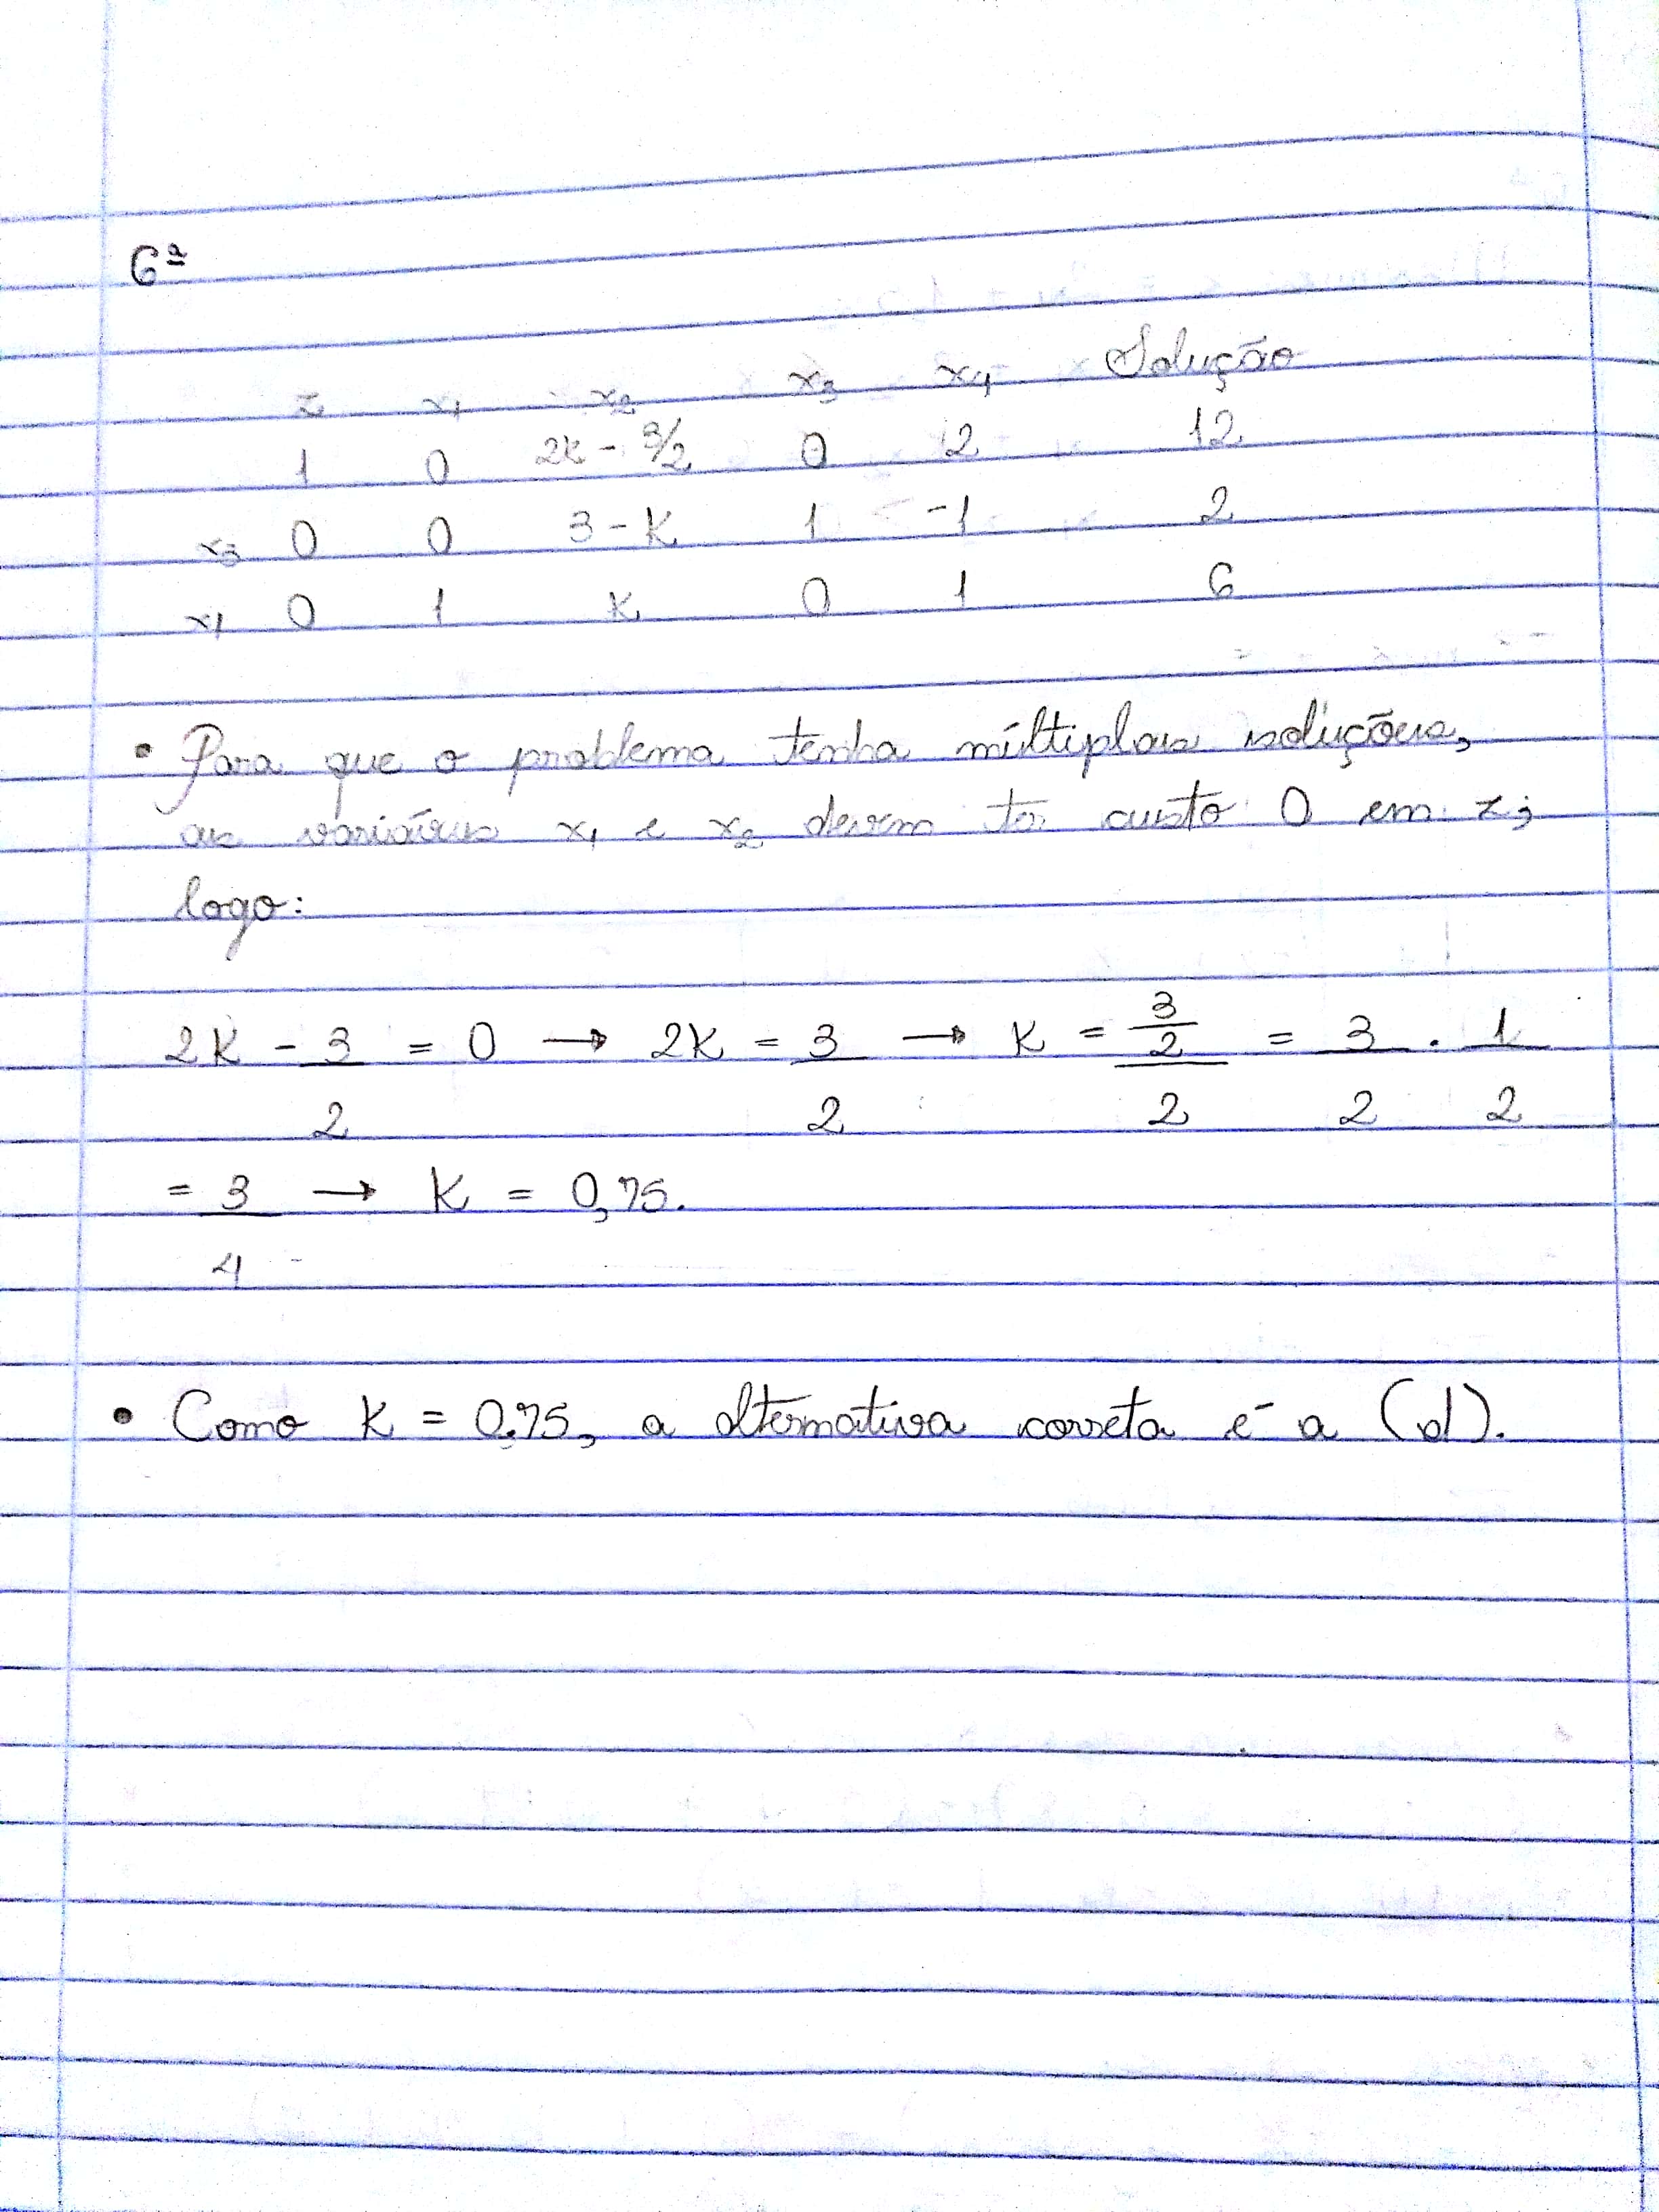 6ª
z x1 x2 x3 x4 Solução
1 0 2k - 3/2 0 2 12
x3 0 0 3 - K 1 -1 2
x1 0 1 K 0 1 6
• Para que o problema tenha múltiplas soluções,
as variáveis x1 e x2 devem ter custo 0 em z;
logo:
2K - 3/2 = 0 → 2K = 3/2 → K = 3/2/2 = 3/2 . 1/2
= 3/4 → K = 0,75.
• Como K = 0,75, a alternativa correta é a (d).